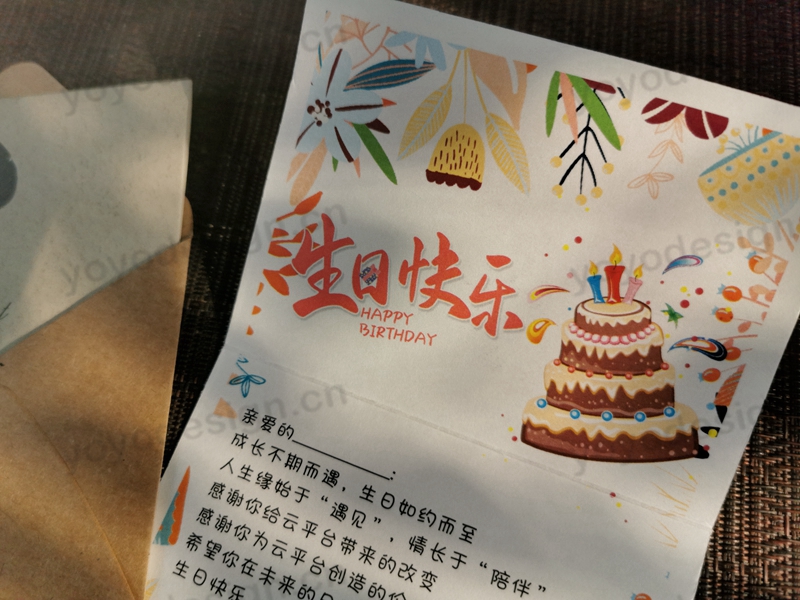 生日快乐
HAPPY
BIRTHDAY
亲爱的__________:
成长不期而遇，生日如约而至
人生缘始于“遇见”，情长于“陪伴”
感谢你给云平台带来的改变
感谢你为云平台创造的价
希望你在未来的日
生日快乐
yoyodesign.cn